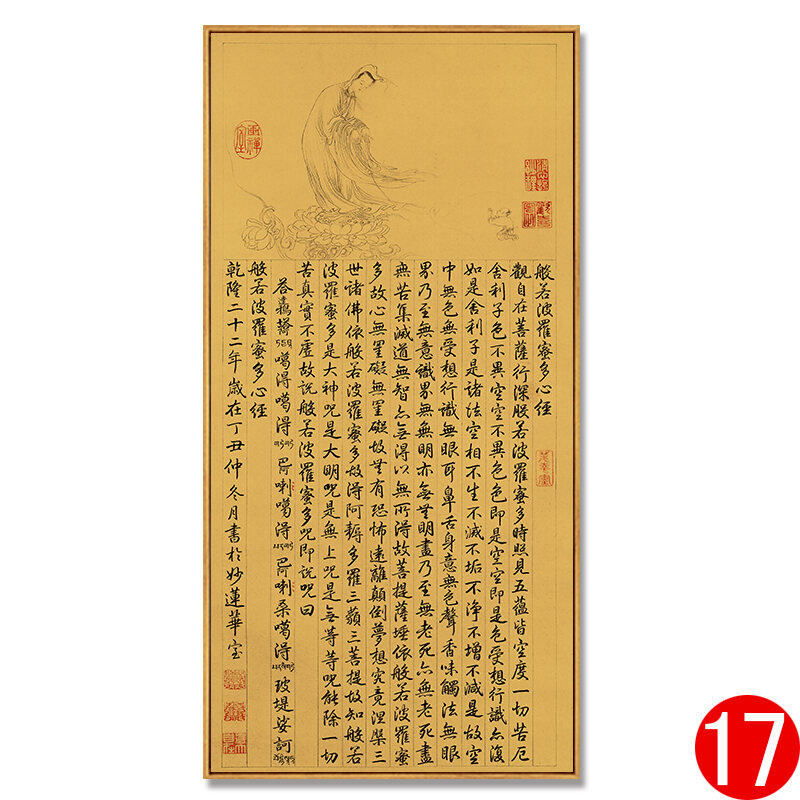 般若波羅蜜多心經
觀自在菩薩行深般若波羅蜜多時照見五蘊皆空度一切苦厄
舍利子色不異空空不異色色即是空空即是色受想行識亦復
如是舍利子是諸法空相不生不滅不垢不浄不增不減是故空
中無色無受想行識無眼耳鼻舌身意無色聲香味觸法無眼
界乃至無意識界無無明亦無無明盡乃至無老死亦無老死盡
無苦集滅道無智亦無得以無所得故菩提薩埵依般若波羅蜜
多故心無罣礙無罣礙故無有恐怖遠離顛倒夢想究竟涅槃三
世諸佛依般若波羅蜜多故得阿耨多羅三藐三菩提故知般若
波羅蜜多是大神呪是大明呪是無上呪是無等等呪能除一切
苦真實不虛故說般若波羅蜜多呪即說呪曰
噶得噶得 喇噶得 喇桑噶得 玻堤娑訶
般若波羅蜜多心經
乾隆二十二年歲在丁丑仲冬月書於妙蓮華室
17